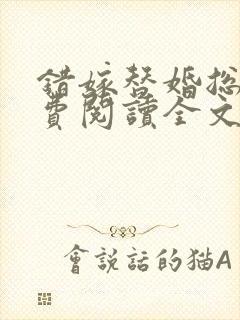 錯嫁替婚總
費閱讀全文
會說話的猫A